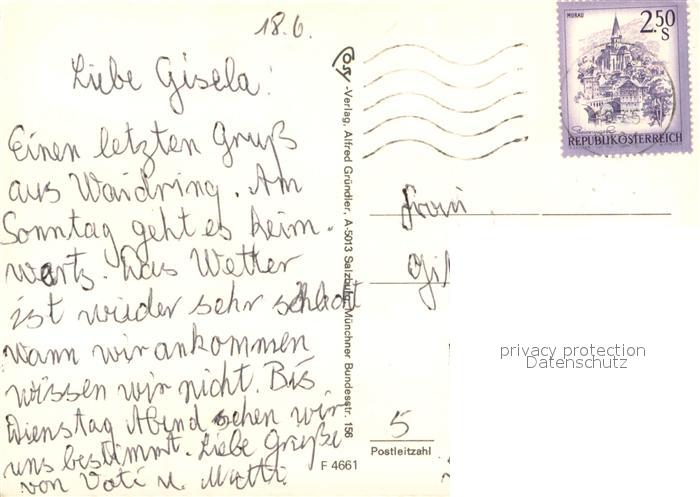 18.6.
Liebe Gisela!
Einen letzten Gruß
aus Waidring. Am
Sonntag geht es heim-
warts. Das Wetter
ist wieder sehr schlecht
wann wir ankommen
wissen wir nicht. Bis
Dienstag Abend sehen wir
uns bestimmt. Liebe Grüße
von Vati u. Mutti.
Cosy -Verlag, Alfred Gründler, A-5013 Salzburg, Münchner Bundesstr. 156
F 4661
MURAU
2.50
S
REPUBLIK ÖSTERREICH
Frau
Gi
privacy protection
Datenschutz
5
Postleitzahl